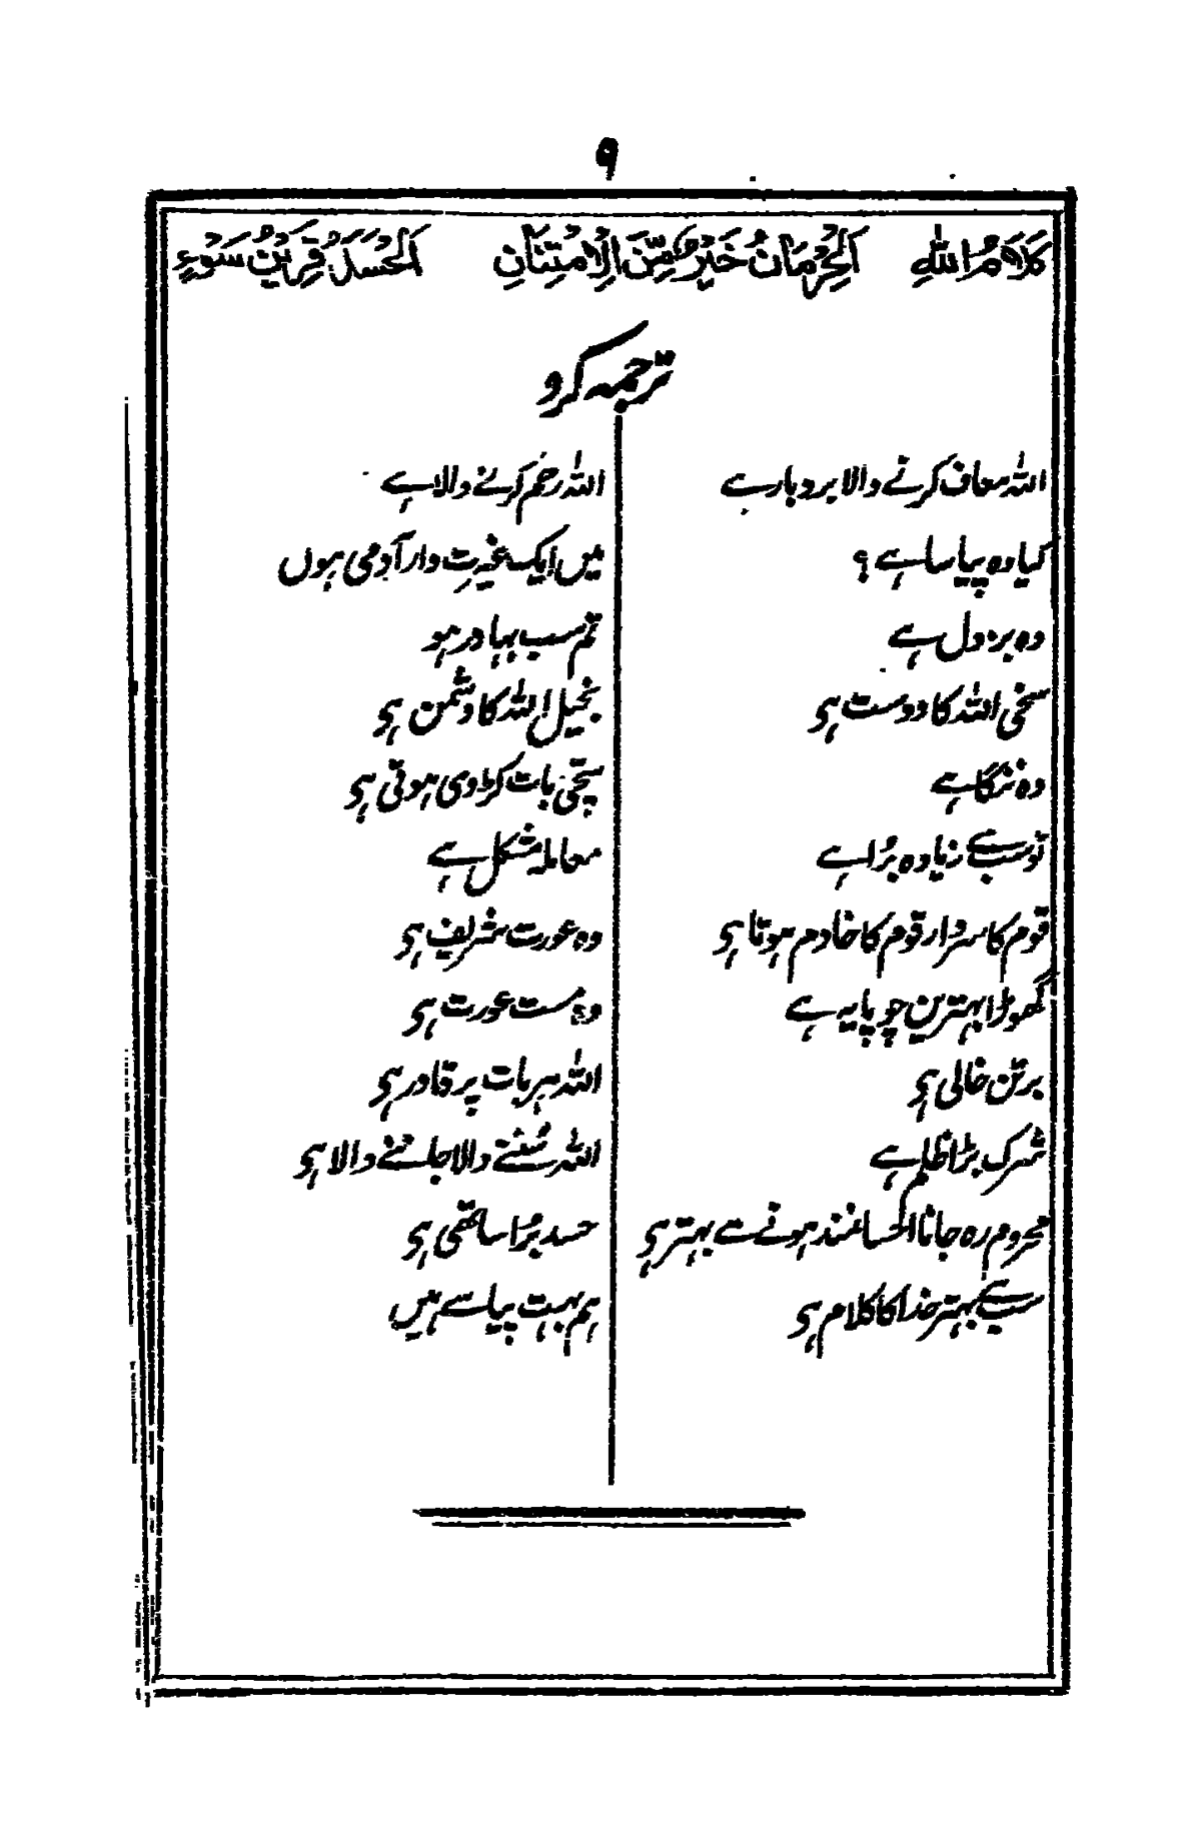 ۹
كَلَامُ اللّٰهِ اَلْحِرْمَانُ خَيْرٌ مِّنَ الْاِمْتِنَانِ اَلْحَسَدُ قَرِيْنُ سَوْءٍ
ترجمہ کرو
اللہ معاف کرنے والا بردبار ہے
کیا وہ پیاسا ہے ؟
وہ بزدل ہے
سخی اللہ کا دوست ہی
وہ ننگا ہے
تو سب سے زیادہ بُرا ہے
قوم کا سردار قوم کا خادم ہوتا ہی
گھوڑا بہترین چوپایہ ہے
برتن خالی ہی
شرک بڑا ظلم ہے
محروم رہ جانا احسانمند ہونے سے بہتر ہی
سب سے بہتر خدا کا کلام ہی
اللہ رحم کرنے والا ہے
میں ایک غیرت دار آدمی ہوں
تم سب بہادر ہو
بخیل اللہ کا دشمن ہی
سچّی بات کڑوی ہوتی ہی
معاملہ مشکل ہے
وہ عورت شریف ہی
وہ مست عورت ہی
اللہ ہر بات پر قادر ہی
اللہ سُننے والا جاننے والا ہی
حسد بُرا ساتھی ہی
ہم بہت پیاسے ہیں